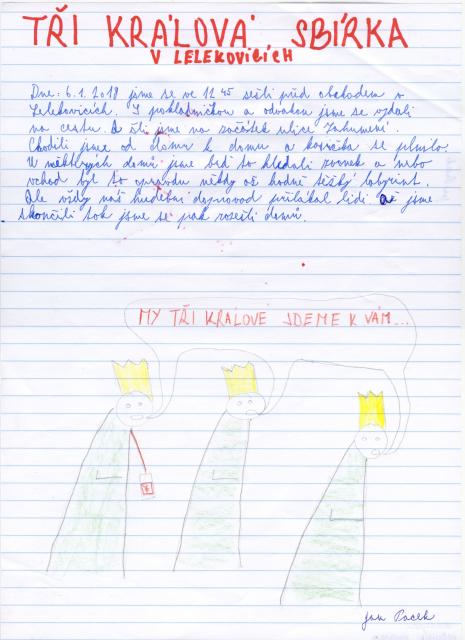 TŘI KRÁLOVÁ SBÍRKA
V LELEKOVICÍCH
Dne: 6.1.2018 jsme se ve 12 45 sešli před obchodem v
Lelekovicích. S pokladničkou a odvahou jsme se vydali
na cestu. A šli jsme na začátek ulice Zahumení.
Chodili jsme od domu k domu a kasička se plnila.
U některých domů jsme buď to hledali zvonek a nebo
vchod byl to opravdu někdy až hodně těšký labyrint.
Ale vždy náš hudební doprovod přilákal lidi až jsme
skončili tak jsme se pak rozešli domů.
MY TŘI KRÁLOVÉ JDEME K VÁM...
Jan Pacek